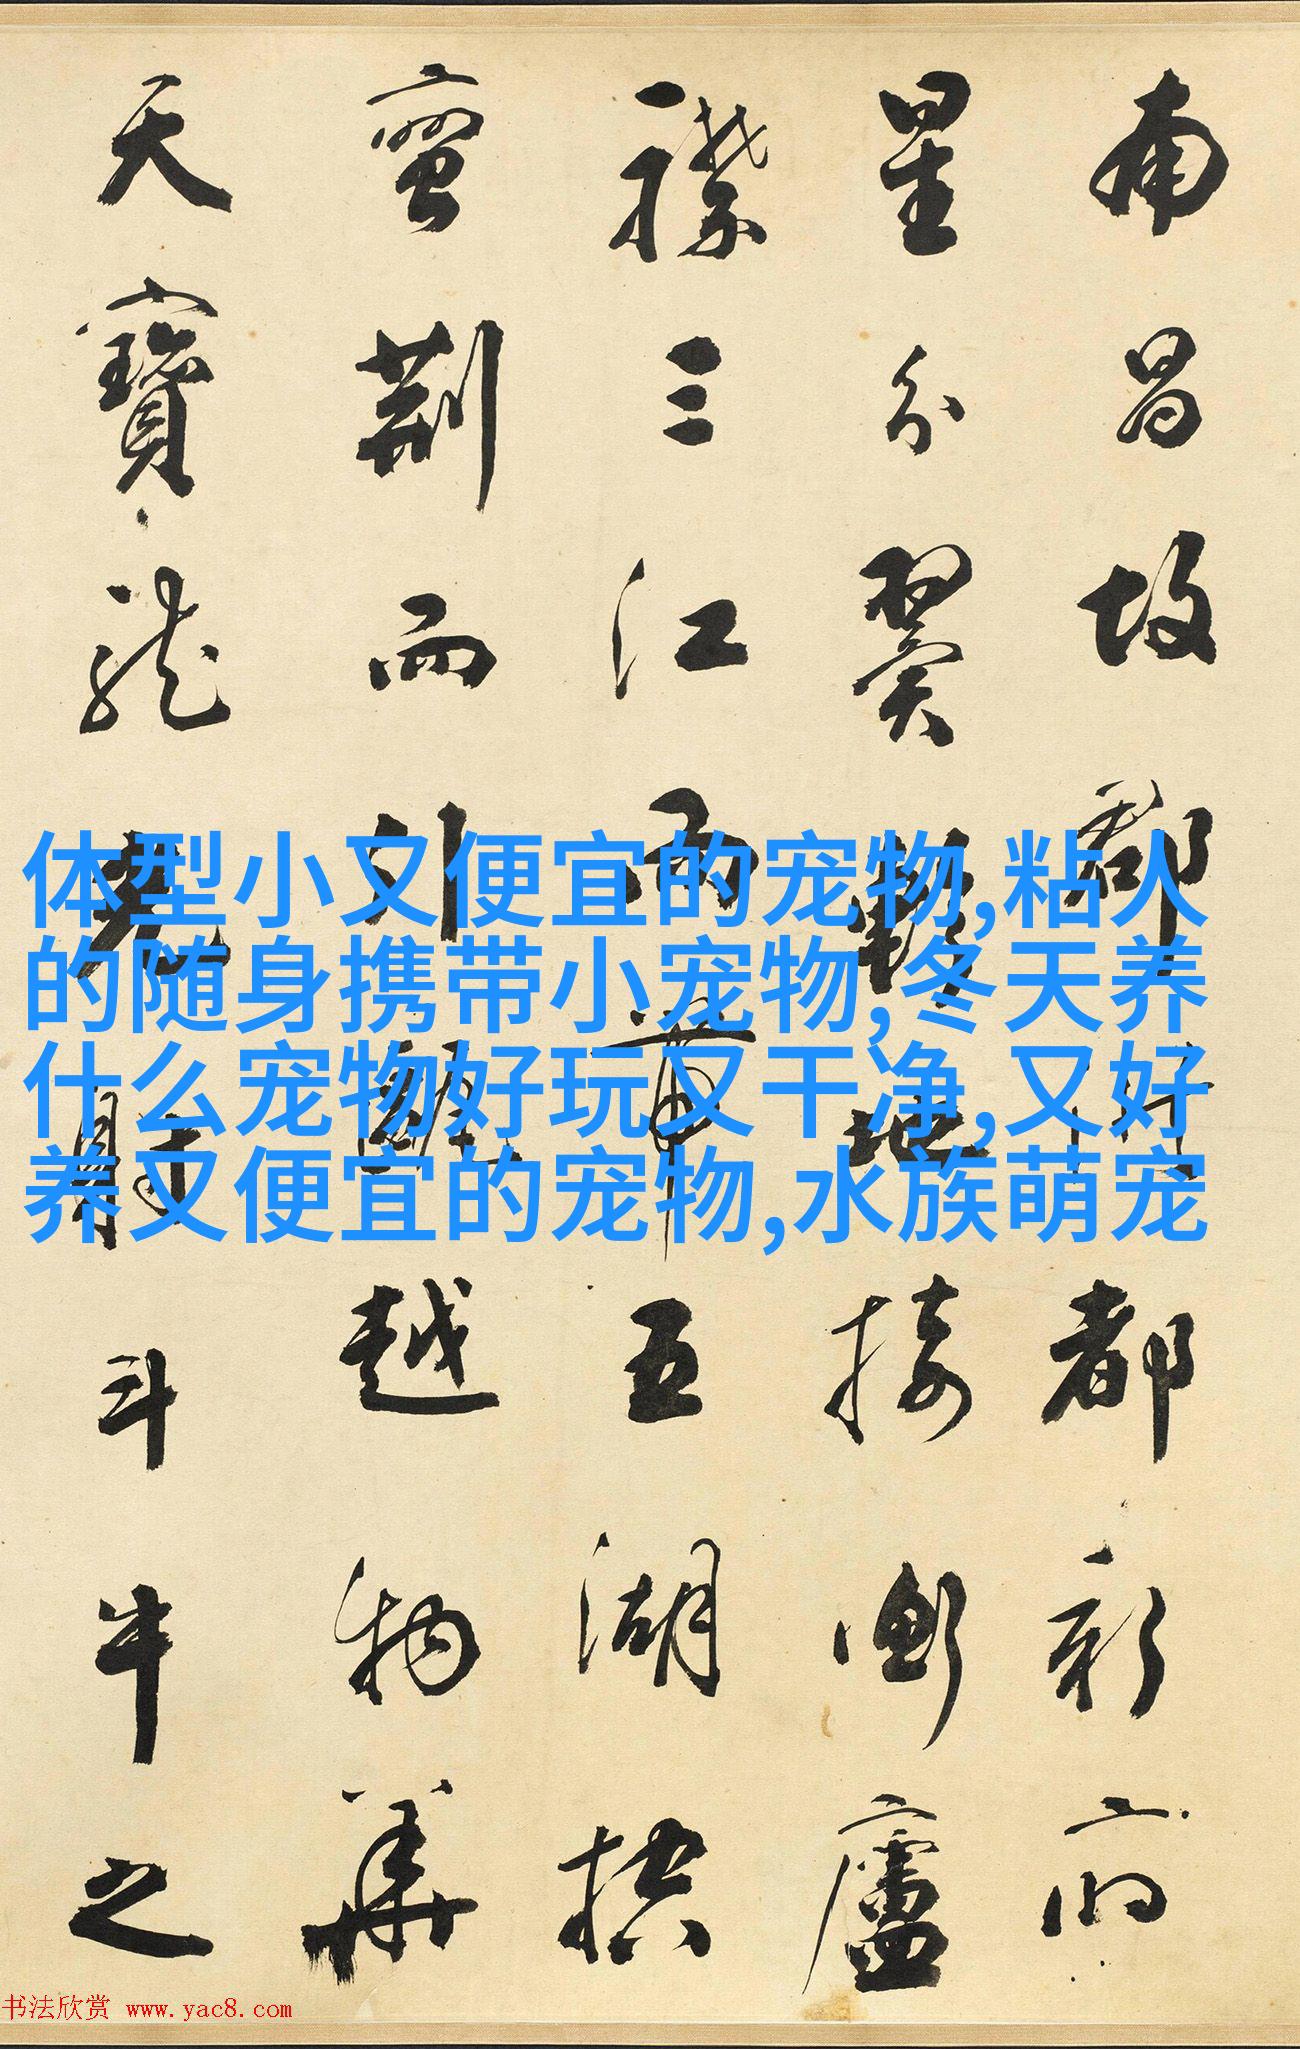 南昌故郡洪都新府
星分翼軫地接衡廬
襟三江而帶五湖控
蠻荊而引甌越物華
天寶龍光射斗牛之
体型小又便宜的宠物,粘人
的随身携带小宠物,冬天养
什么宠物好玩又干净,又好
养又便宜的宠物,水族萌宠
书法欣赏 www.yac8.com